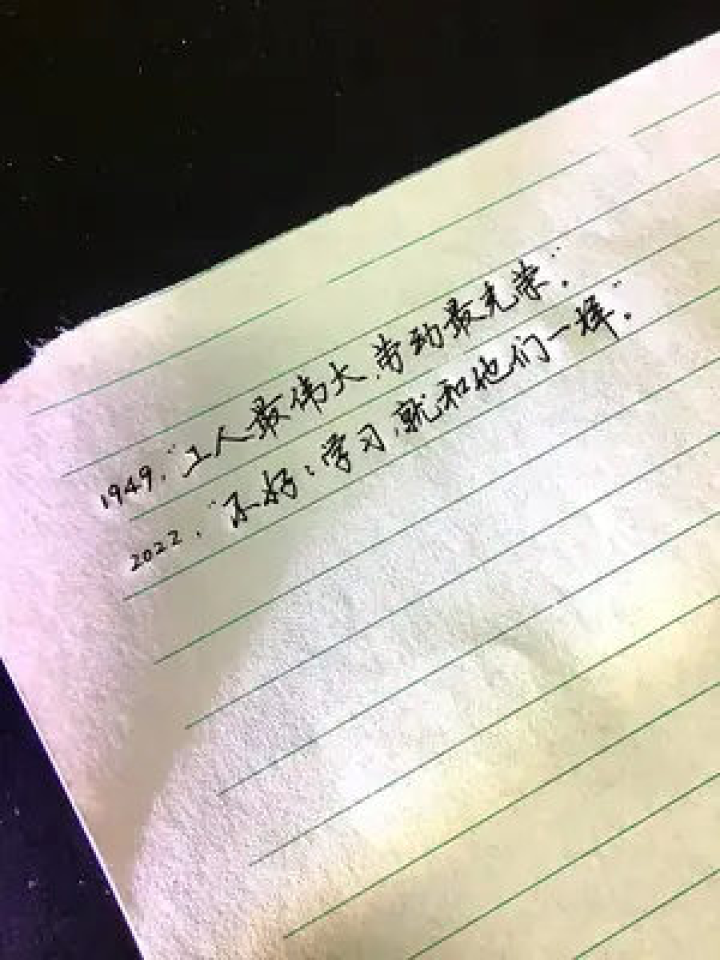 1949，“工人最伟大，劳动最光荣”。
2022，“不好好学习，就和他们一样”。